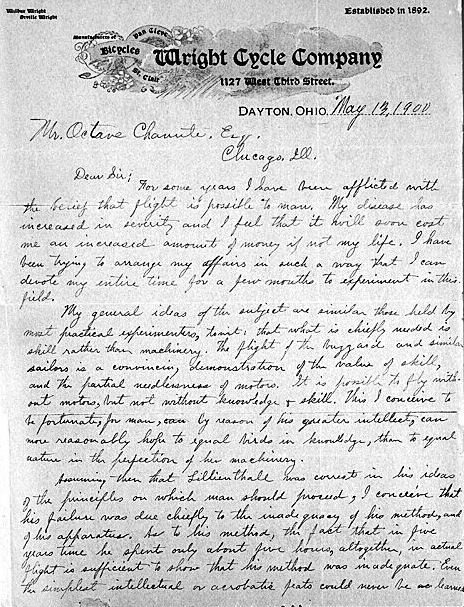 Wilbur Wright
Orville Wright
Established in 1892.
Manufacturers of
Bicycles
Van Cleve
St. Clair
Wright Cycle Company
1127 West Third Street.
DAYTON, OHIO, May 13, 1900
Mr. Octave Chanute, Esq.
Chicago, Ill.
Dear Sir;
For some years I have been afflicted with
the belief that flight is possible to man. My disease has
increased in severity and I feel that it will soon cost
me an increased amount of money if not my life. I have
been trying to arrange my affairs in such a way that I can
devote my entire time for a few months to experiment in this
field.
My general ideas of the subject are similar those held by
most practical experimenters, to wit: that what is chiefly needed is
skill rather than machinery. The flight of the buzzard and similar
sailors is a convincing demonstration of the value of skill,
and the partial needlessness of motors. It is possible to fly with-
out motors, but not without knowledge & skill. This I conceive to
be fortunate, for man, can by reason of his greater intellect, can
more reasonably hope to equal birds in knowledge, than to equal
nature in the perfection of her machinery.
Assuming then that Lillienthall was correct in his ideas
of the principles on which man should proceed, I conceive that
his failure was due chiefly to the inadequacy of his method, and
of his apparatus. As to his method, the fact that in five
years time he spent only about five hours, altogether, in actual
flight is sufficient to show that his method was inadequate. Even
the simplest intellectual or acrobatic feats could never be learned